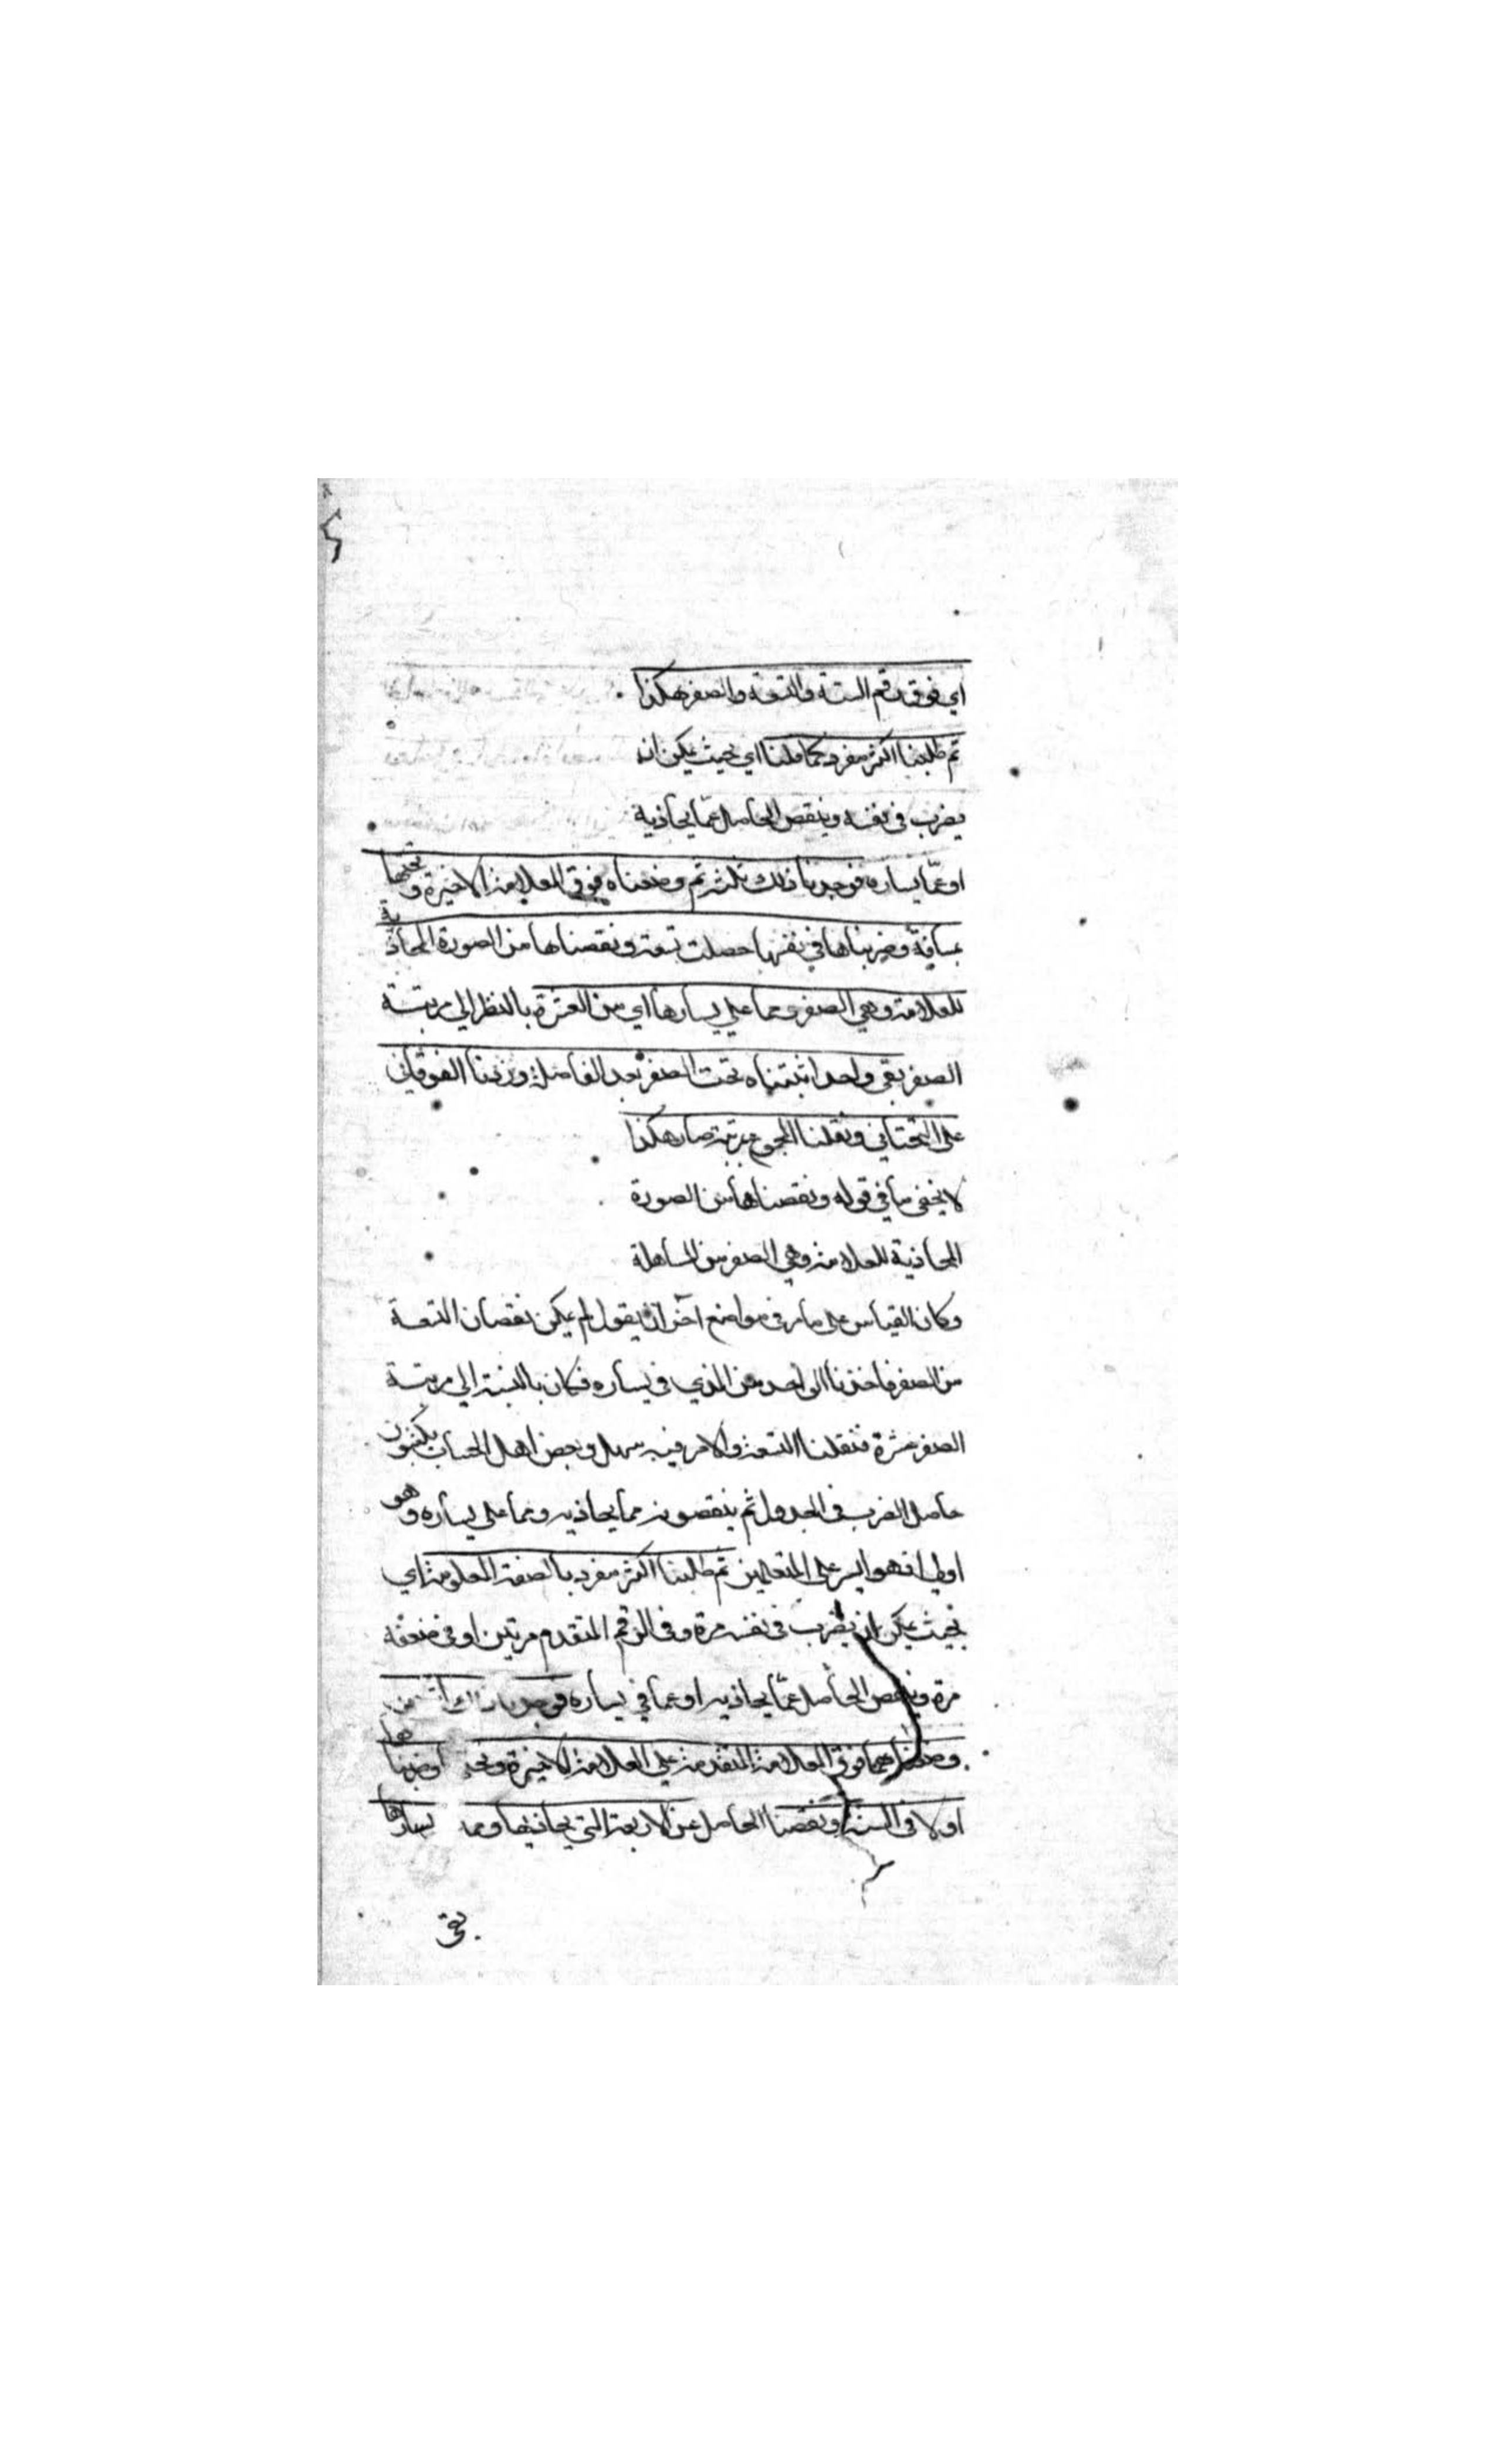 اي فوق رقم الستة والتسعة والصفر هكذا
ثم طلبنا اكثر مفرد كما قلنا اي بحيث يمكن ان
يضرب في نفسه وينقص الحاصل عما يحاذيه
او عما يساره فوجدنا ذلك ثلثة ثم وضعناه فوق العلامة الاخيرة وتحتها
بمسافة وضربناها في نفسها حصلت تسعة ونقصناها من الصورة المحاذية
للعلامة وهي الصفر عما علي يسارها اي من العشرة بالنظر الي مرتبة
الصفر بقي واحد اثبتناه تحت الصفر بعد الفاصلة وزدنا الفوقاني
على التحتاني ونقلنا المجموع بمرتبة صار هكذا
لا يخفى ما في قوله ونقصناها من الصورة
المحاذية للعلامة وهي الصفر من المساهلة
وكان القياس على ما مر في مواضع اخر ان يقول لم يمكن نقصان التسعة
من الصفر فاخذنا الواحد من الذي في يساره فكان بالنسبة الي مرتبة
الصفر عشرة فنقلنا التسعة والامر فيه سهل وبعض اهل الحساب يكتبون
حاصل الضرب في الجدول ثم ينقصون مما يحاذيه ومما على يساره وهو
اولى اذ هو ايسر على المتعلمين ثم طلبنا اكثر مفرد بالصفة المعلومة اي
بحيث يمكن ان يضرب في نفسه مرة وفي الرقم المتقدم مرتين او في ضعفه
مرة وينقص الحاصل عما يحاذيه او عما في يساره فوجدنا ذلك اثنين
وضعناهما فوق العلامة المتقدمة علي العلامة الاخيرة وضربناها
اولا في الستة ونقصنا الحاصل عن الاربعة التي يحاذيها وعما يسارها
بقي